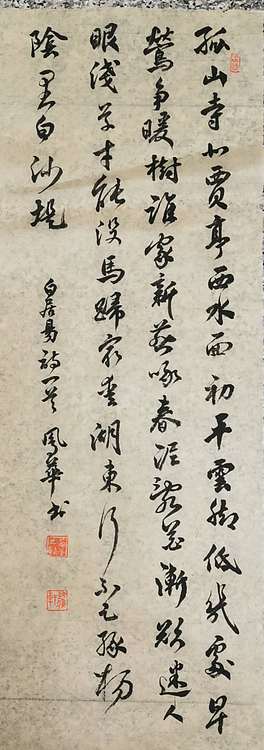 孤山寺北賈亭西水面初平雲脚低幾處早
鶯爭暖樹誰家新燕啄春泥亂花漸欲迷人
眼淺草才能沒馬蹄最愛湖東行不足綠楊
陰里白沙堤
白居易詩一首 鳳華書